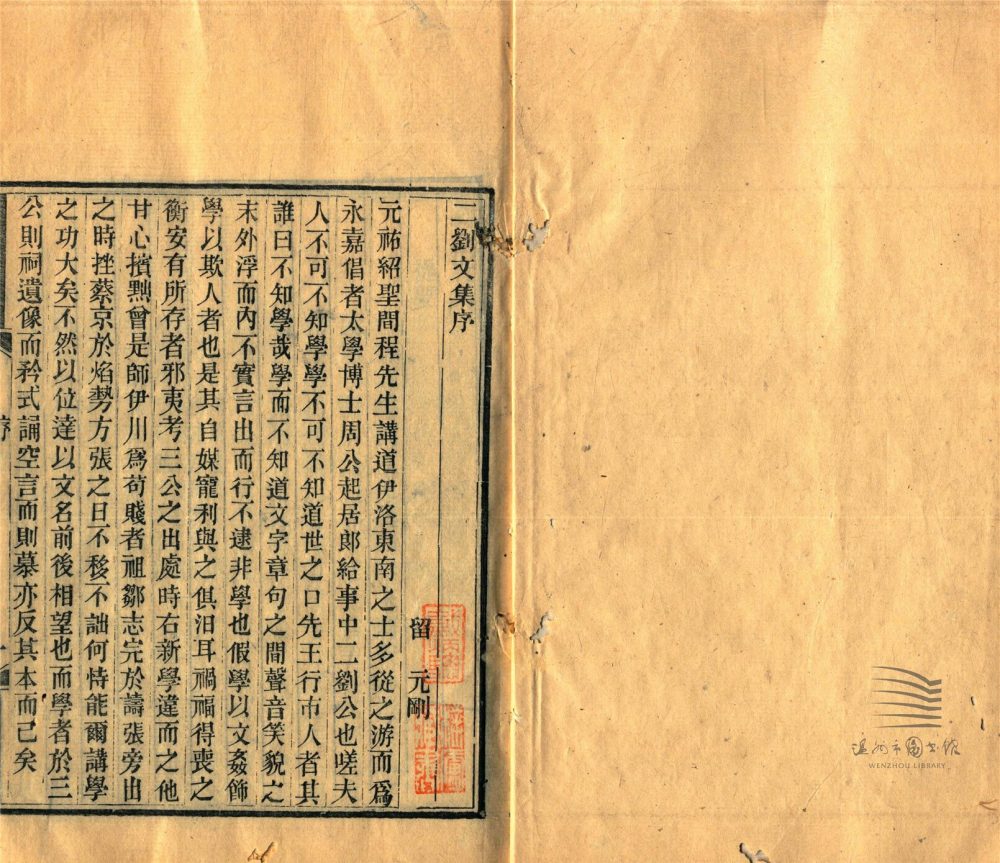 二劉文集序
留 元剛
元祐紹聖間程先生講道伊洛東南之士多從之游而爲
永嘉倡者太學博士周公起居郎給事中二劉公也嗟夫
人不可不知學學不可不知道世之口先王行市人者其
誰曰不知學哉學而不知道文字章句之間聲音笑貌之
末外浮而內不實言出而行不逮非學也假學以文姦飾
學以欺人者也是其自媒寵利與之俱汨耳禍福得喪之
衡安有所存者邪夷考三公之出處時右新學違而之他
甘心擯黜曾是師伊川爲苟賤者祖鄒志完於譸張旁出
之時挫蔡京於焰勢方張之日不移不詘何恃能爾講學
之功大矣不然以位達以文名前後相望也而學者於三
公則祠遺像而矜式誦空言而則慕亦反其本而已矣
序
一
温州市图书馆
WENZHOU LIBRARY